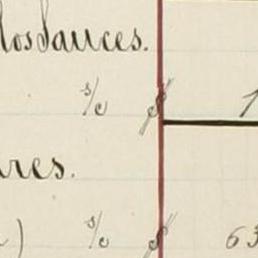 los Sauces.
s/c $ 1
res.
) s/c $ 63